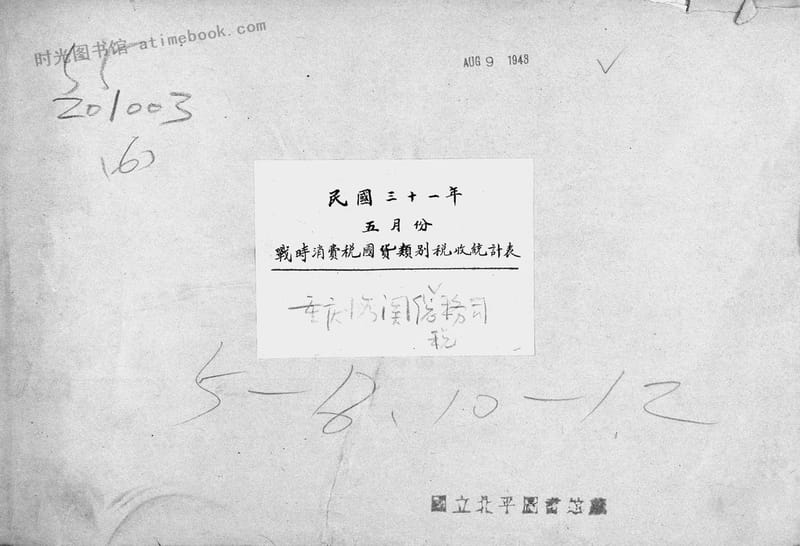 时光图书馆 - atimebook.com
AUG 9 1948
55
201003
(6)
民國三十一年
五月份
戰時消費税國貨類別税收統計表
重庆海関總務司
税
5-8、10-12
國立北平圖書館藏